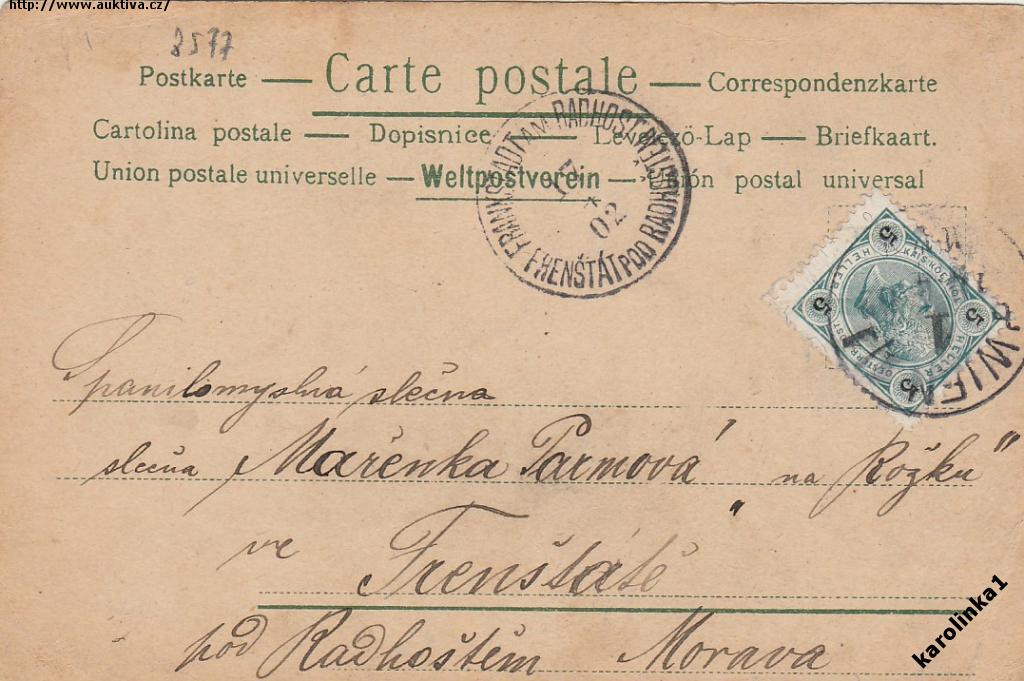 http://www.auktiva.cz/
8577
Postkarte — Carte postale — Correspondenzkarte
Cartolina postale — Dopisnice — Levelező-Lap — Briefkaart.
Union postale universelle — Weltpostverein — Unión postal universal
FRANKSTADT AM RADHOST
FRENŠTÁT POD RADHOŠTĚM
02
WIEN
1
5 5 5 5
HELLER HELLER
Spanilomyslná slečna
slečna Mařenka Parmová „na Rožku“
ve Frenštátě
pod Radhoštěm Morava
karolinka1